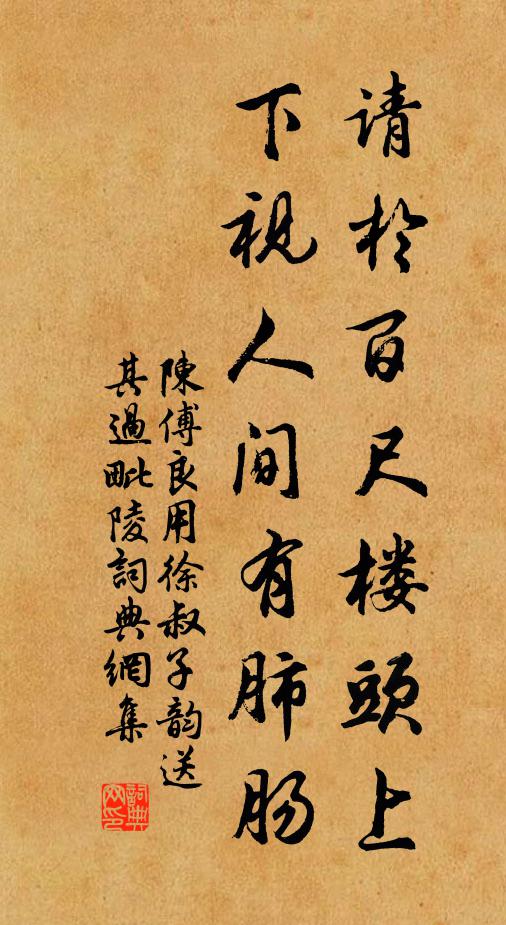 请於百尺楼頭上
下視人间有肺肠
陳傅良用徐叔子韵送
其過毗陵詞典網集
詞典
网印